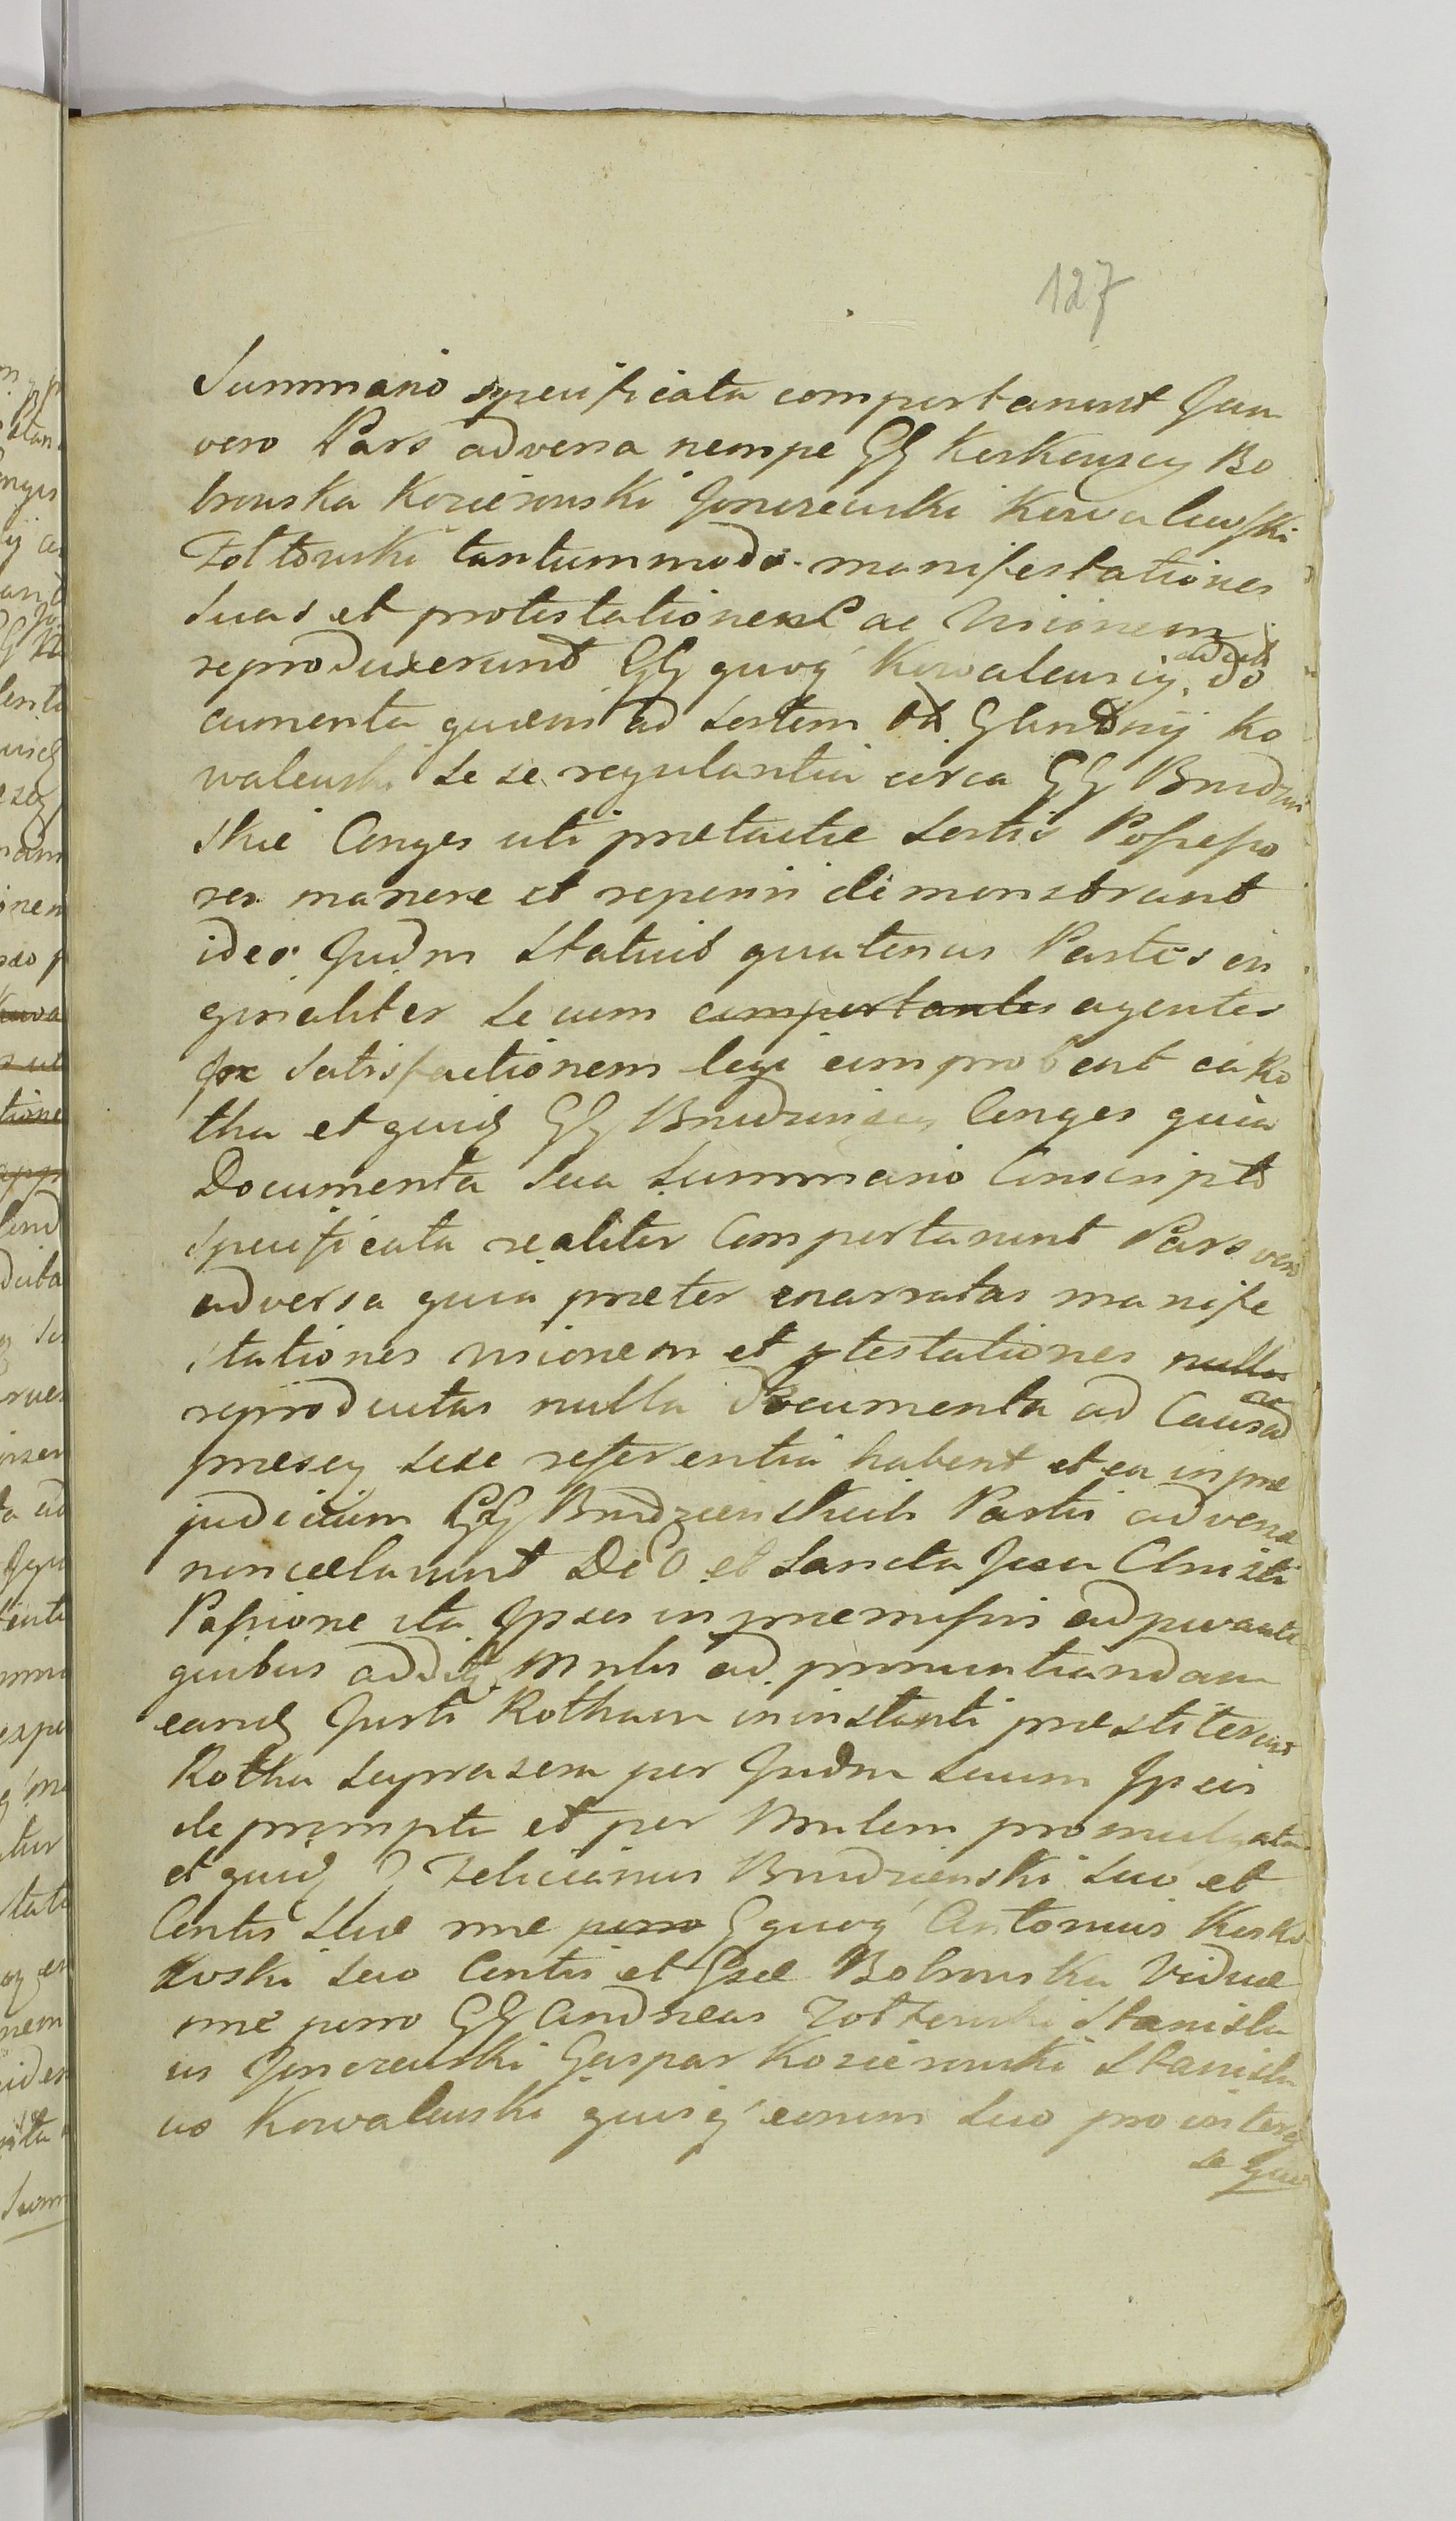 127
Summario specificata comportarunt Qua
vero Pars adversa nempe GG Keskowscy Bo
browska Kozierowski Gonczewski Kowalewski
Żołtowski tantummodo manifestationes
suas et protestationes ac visionem
reproduxerunt GG quoq Kowalewscy adest do
cumenta quaevis ad sortem Kowa
walewski se se regulantia circa GG Brudzin
skie Conges uti praetactae sortis Possesso
res manere et reperiri demonstrant
ideo Judm statuit quatenus Partes ori
ginaliter secum comportantes agentes
satisfactionem legi comprobent ea Ro
tha et quid GG Brudzinscy Conges quia
Documenta sua Summario Conscripto
specificata realiter Comportarunt Pars vero
adversa quia praeter enarratas manife
stationes visionem et ptestationes nulla
reproductas nulla documenta ad Causa
praesen sese referentia habent et ea in prae
judicium GG Brudzienskich Partis adversae
non celarunt Deo et Sancta Jesu Christi
Passione ita Ipsos in praemissis adjuvante
quibus addito Mnlis ad pronuntiandam
eand Jurti Rotham in instanti praestiterunt
Rotha supra sera per Judm suum Ipsis
deprompta et per Mnlem promulgata
et quid G Felicianus Brudzienski suo et
Contis suae nne porro G quoq Antonius Kesko
woski suo Contis et Gsae Bobrowska Viduae
nne porro GG Andreas Żołtowski Stanisla
us Gonczewski Gaspar Kozierowski Stanisla
us Kowalewski quisq eorum suo pro intere
se quo